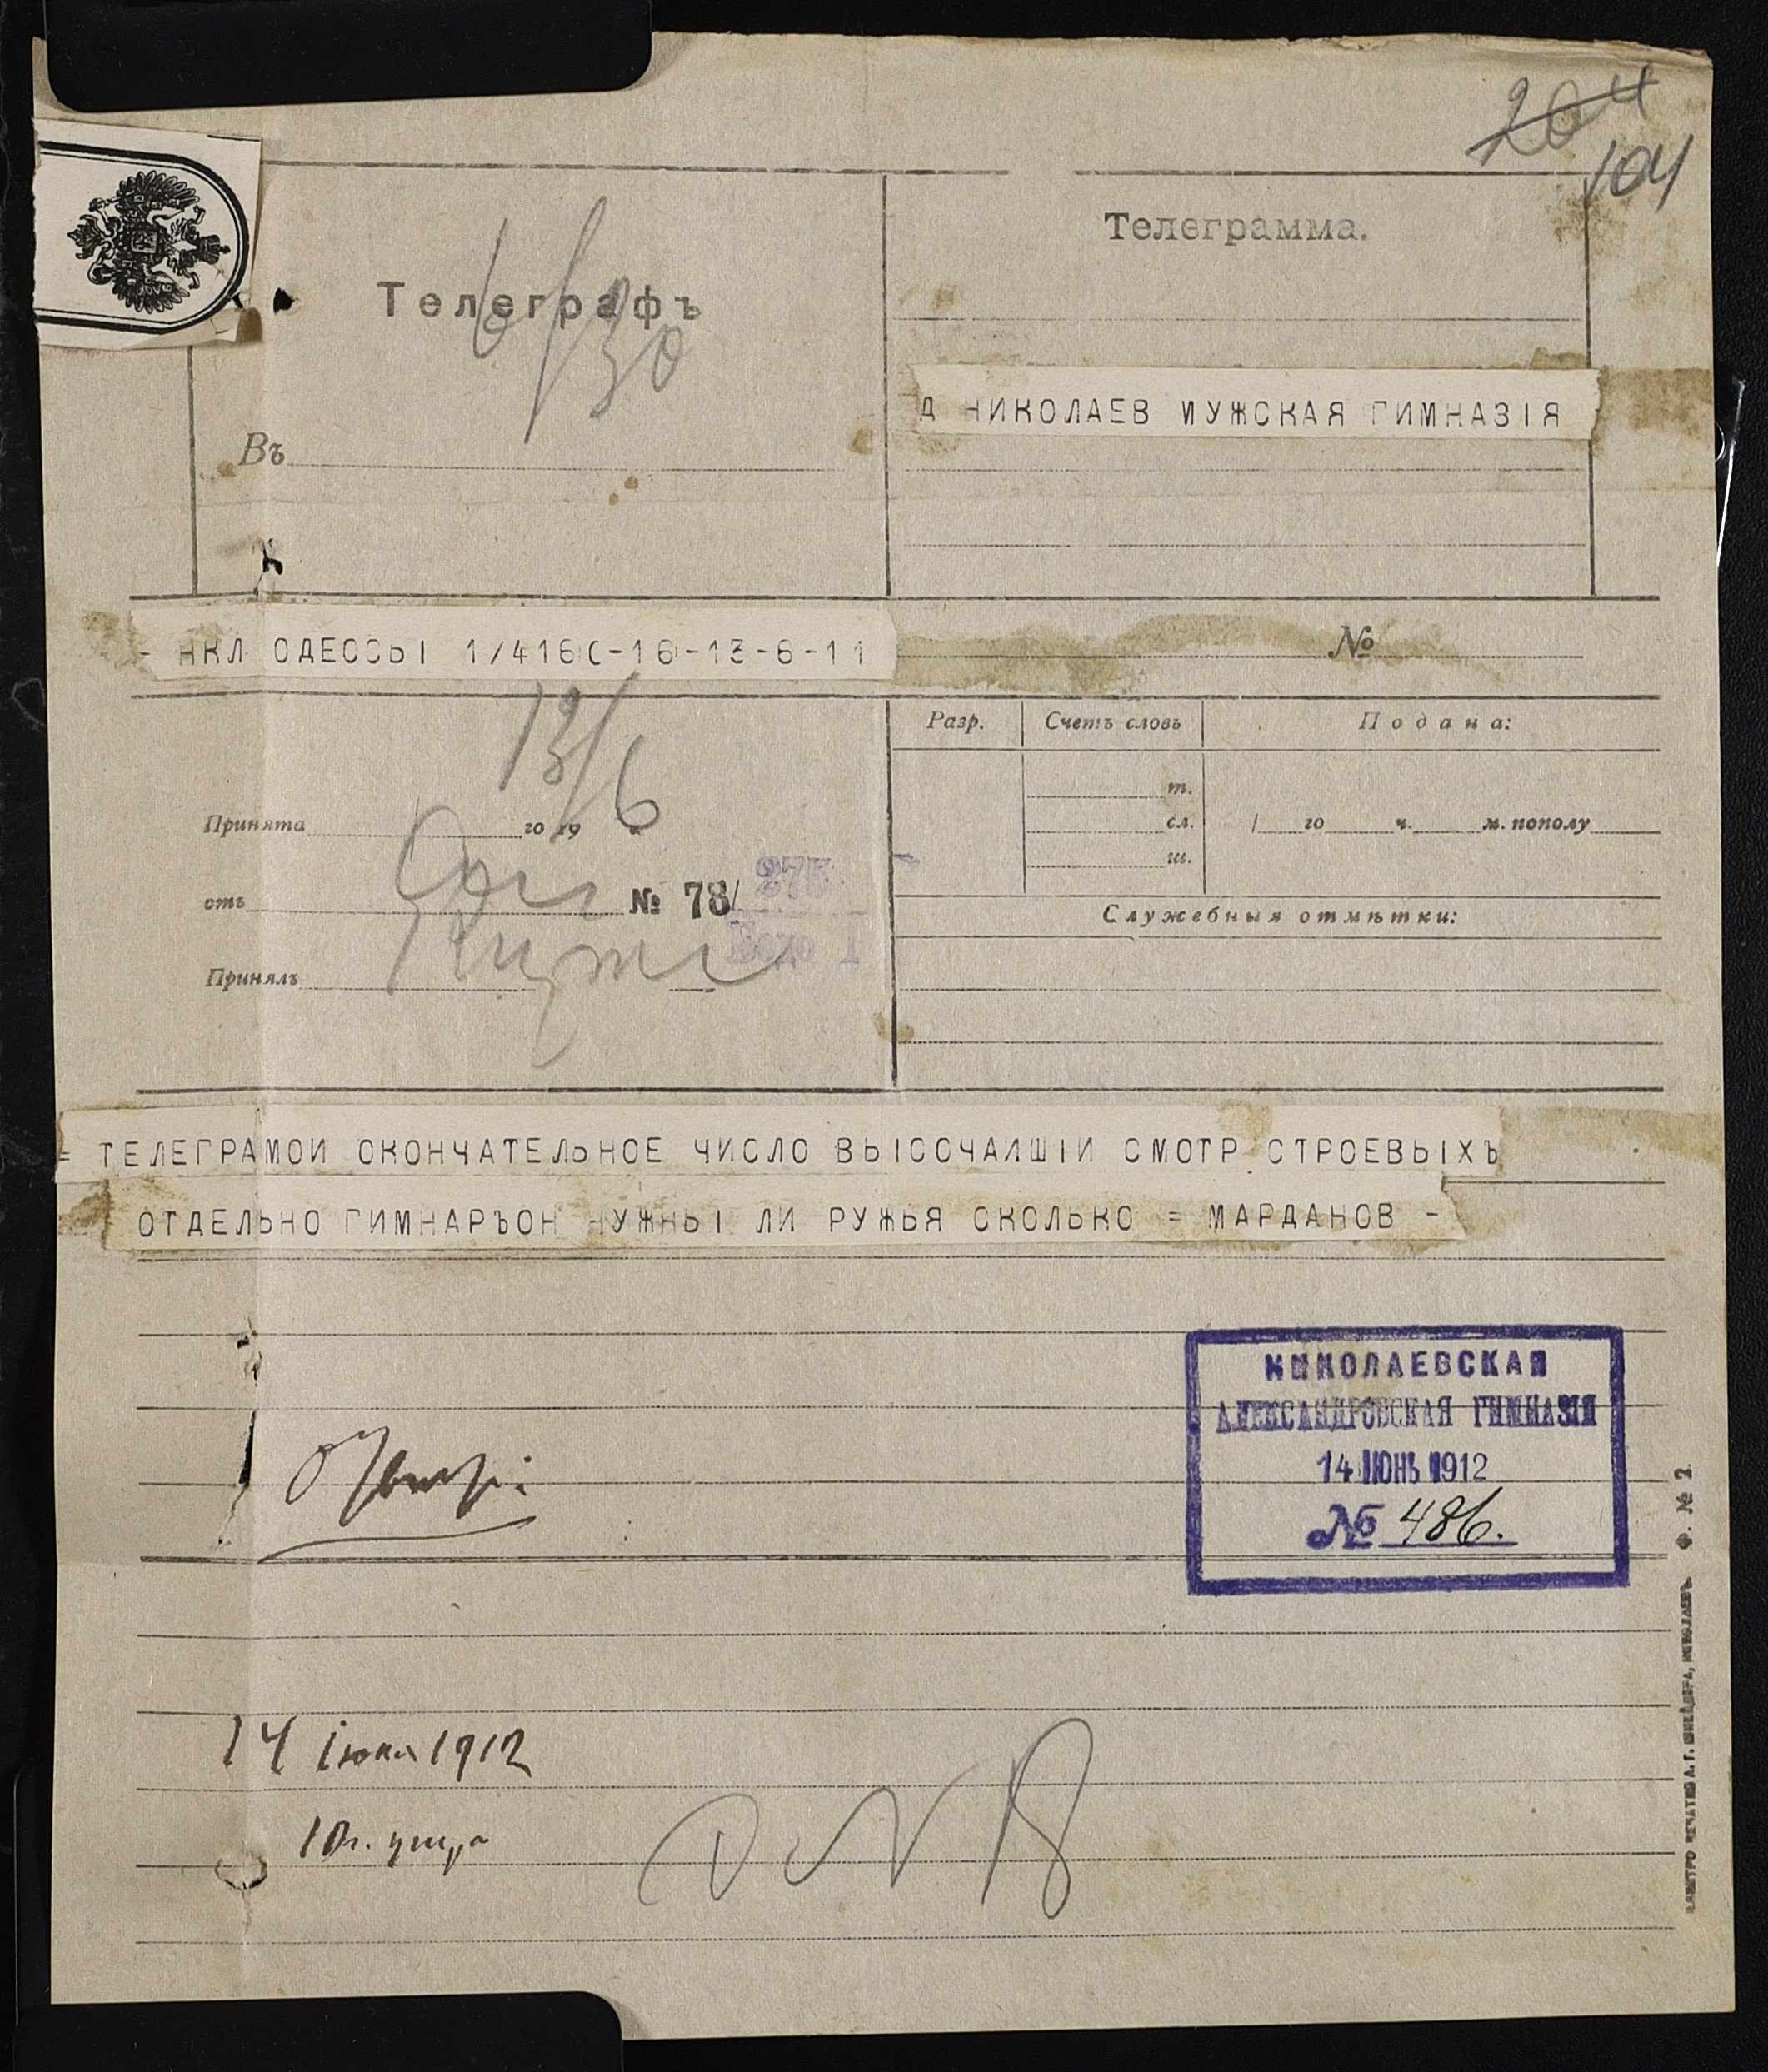 104
Телеграмма.
Телеграфъ
6/30
Д НИКОЛАЕВ МУЖСКАЯ ГИМНАЗІЯ
Въ
- НКЛ ОДЕССЫ 1/4160-16-13-6-11
№
13/6
Разр. Счетъ словъ Подана:
т.
Принята го 19
сл. / го ч. м. пополу
ш.
отъ № 78/
Служебныя отмѣтки:
Принялъ
= ТЕЛЕГРАМОИ ОКОНЧАТЕЛЬНОЕ ЧИСЛО ВЫСОЧАИШІИ СМОТР СТРОЕВЫХЪ
ОТДЕЛЬНО ГИМНАРЪОН НУЖНЫ ЛИ РУЖЬЯ СКОЛЬКО = МАРДАНОВ -
НИКОЛАЕВСКАЯ
АЛЕКСАНДРОВСКАЯ ГИМНАЗІЯ
14 ІЮНЬ 1912
№ 486.
14 іюня 1912
10 ч. утра
Ф. № 2